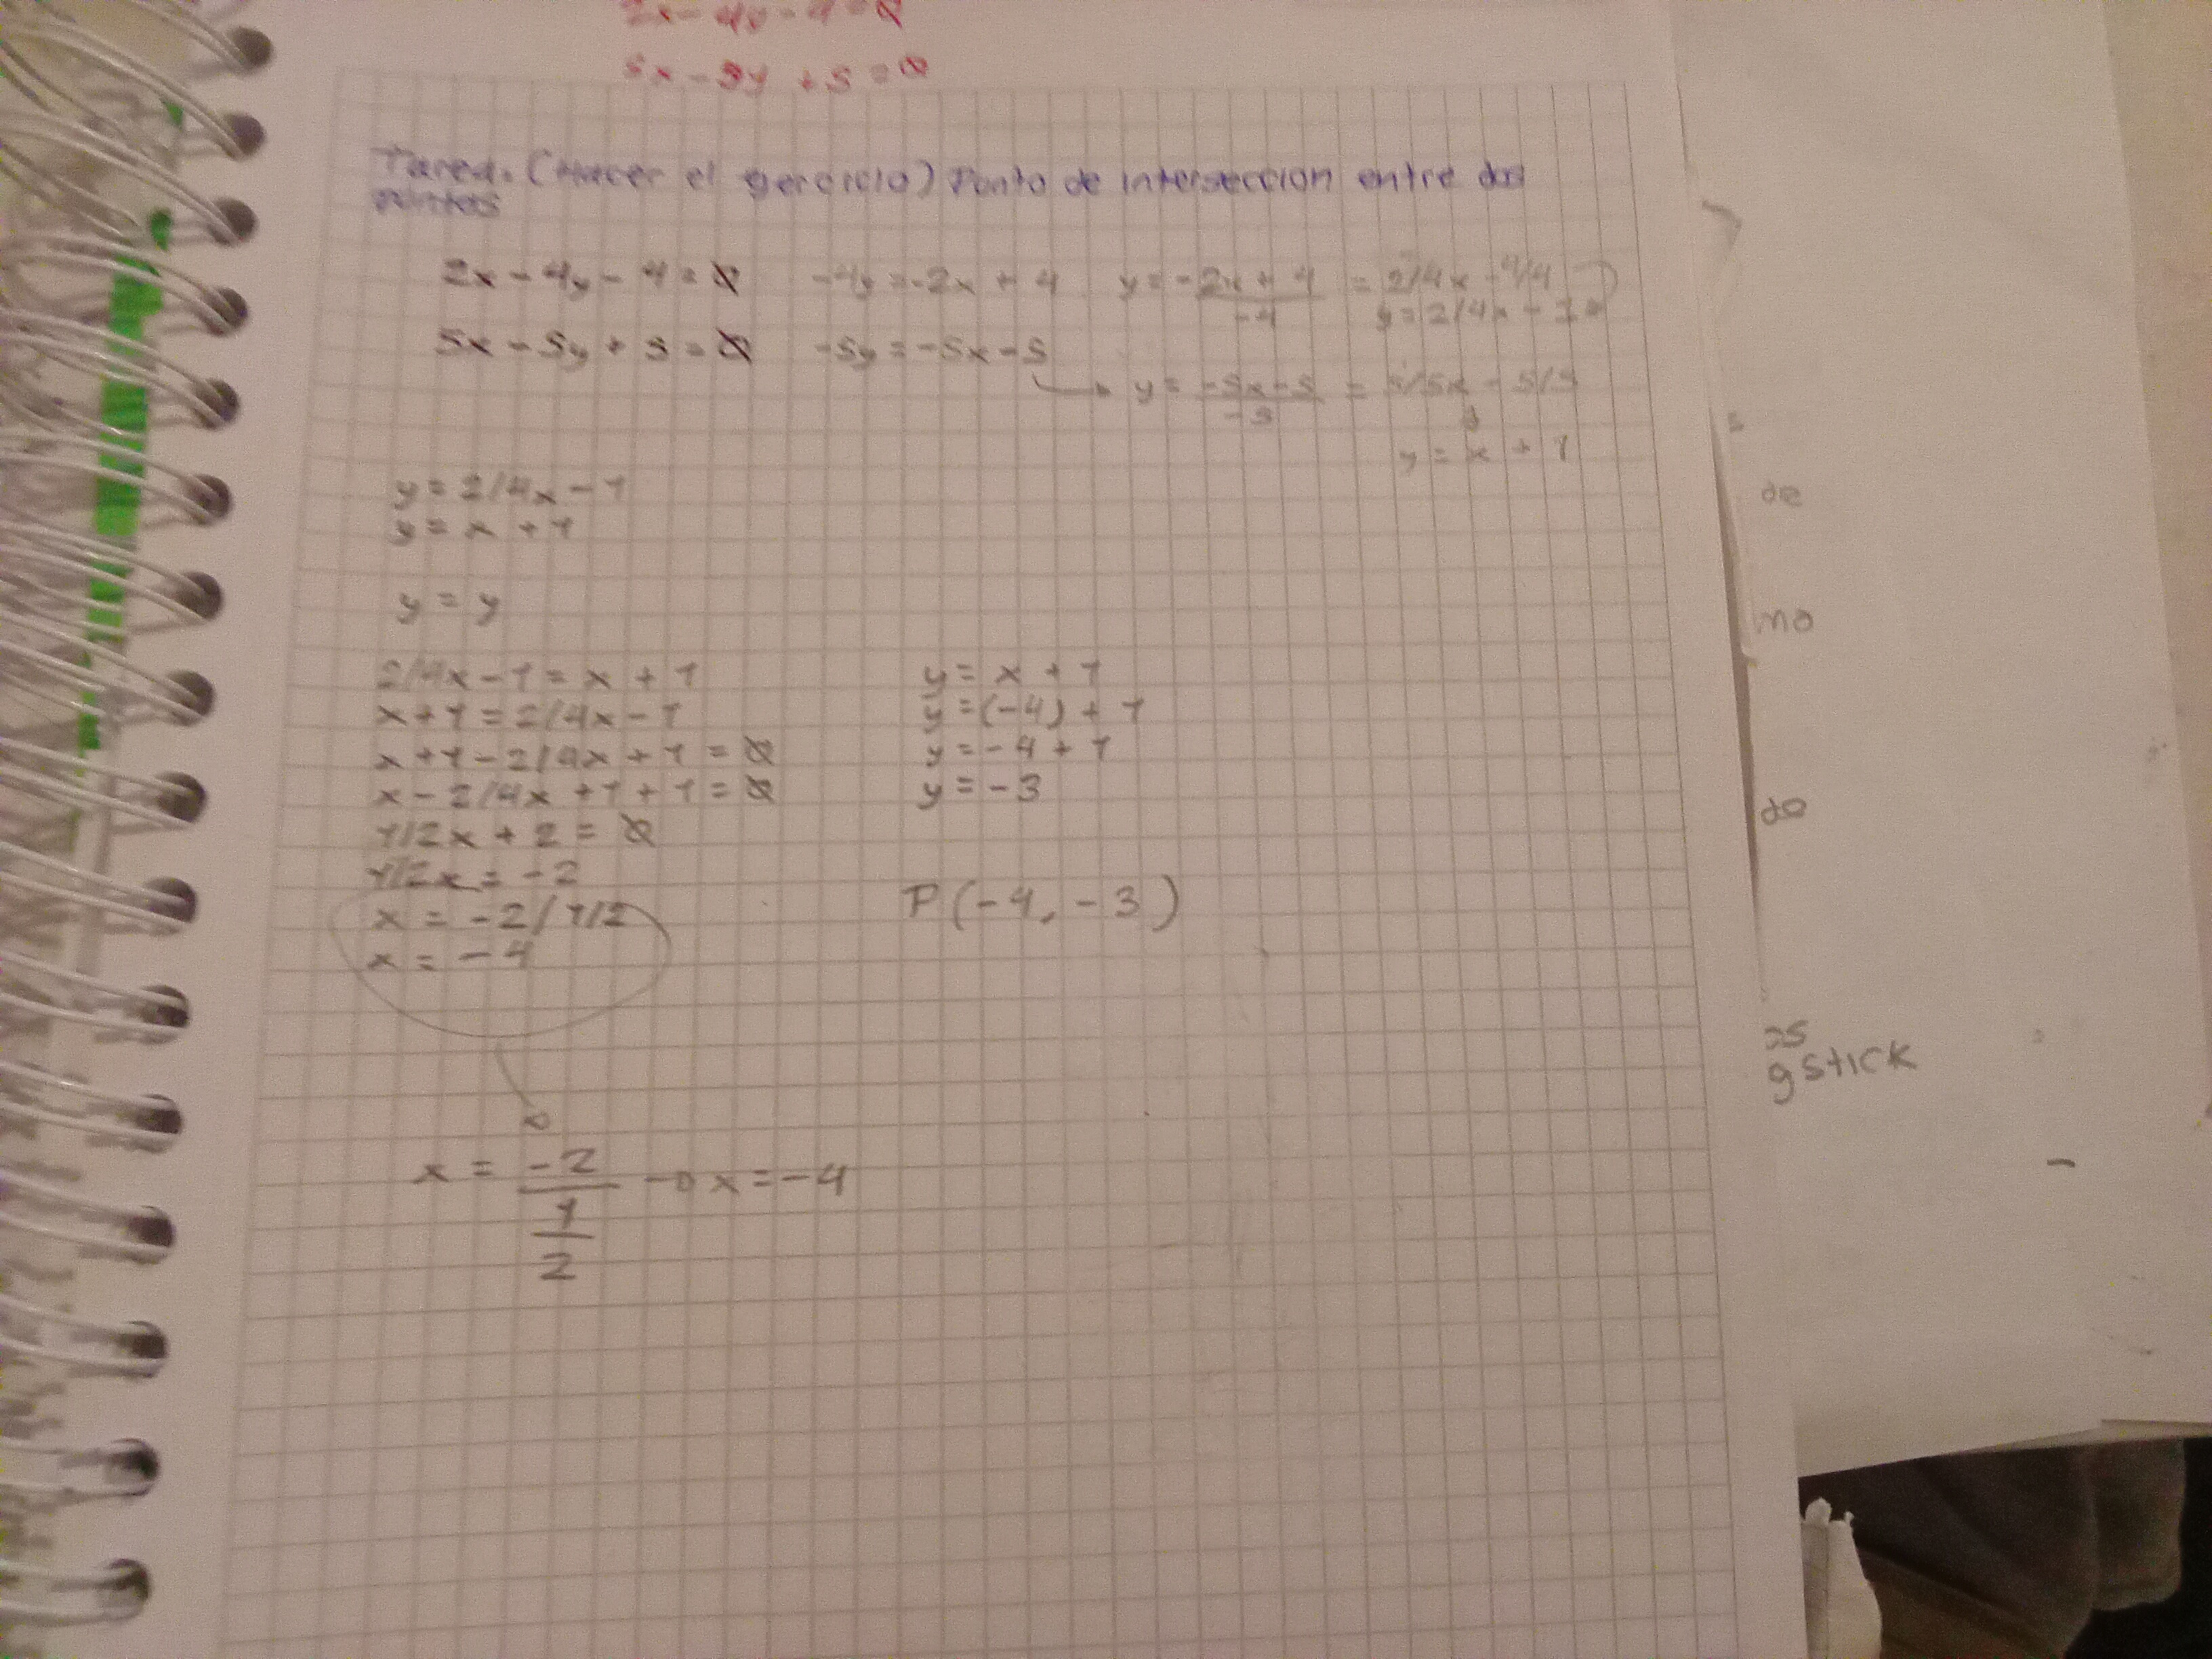 2x - 4y - 4 = 0
5x - 5y + 5 = 0
Tarea. (Hacer el ejercicio) Punto de intersección entre dos
puntos
2x - 4y - 4 = 0   -4y = -2x + 4   y = -2x + 4 / -4 = 2/4x - 4/4
y = 2/4x - 1
5x - 5y + 5 = 0   -5y = -5x - 5
y = -5x - 5 / -5 = 5/5x - 5/5
y = x + 1
y = 2/4x - 1
y = x + 1
y = y
2/4x - 1 = x + 1
x + 1 = 2/4x - 1
x + 1 - 2/4x + 1 = 0
x - 2/4x + 1 + 1 = 0
1/2x + 2 = 0
1/2x = -2
x = -2/1/2
x = -4
y = x + 1
y = (-4) + 1
y = -4 + 1
y = -3
P(-4, -3)
x = -2 / 1/2 → x = -4
de
no
do
as
gstick